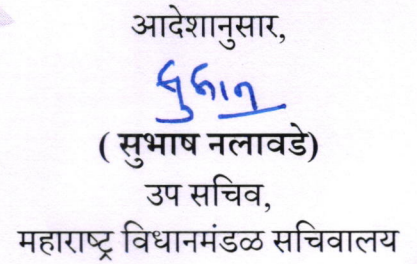 आदेशानुसार,
( सुभाष नलावडे)
उप सचिव,
महाराष्ट्र विधानमंडळ सचिवालय